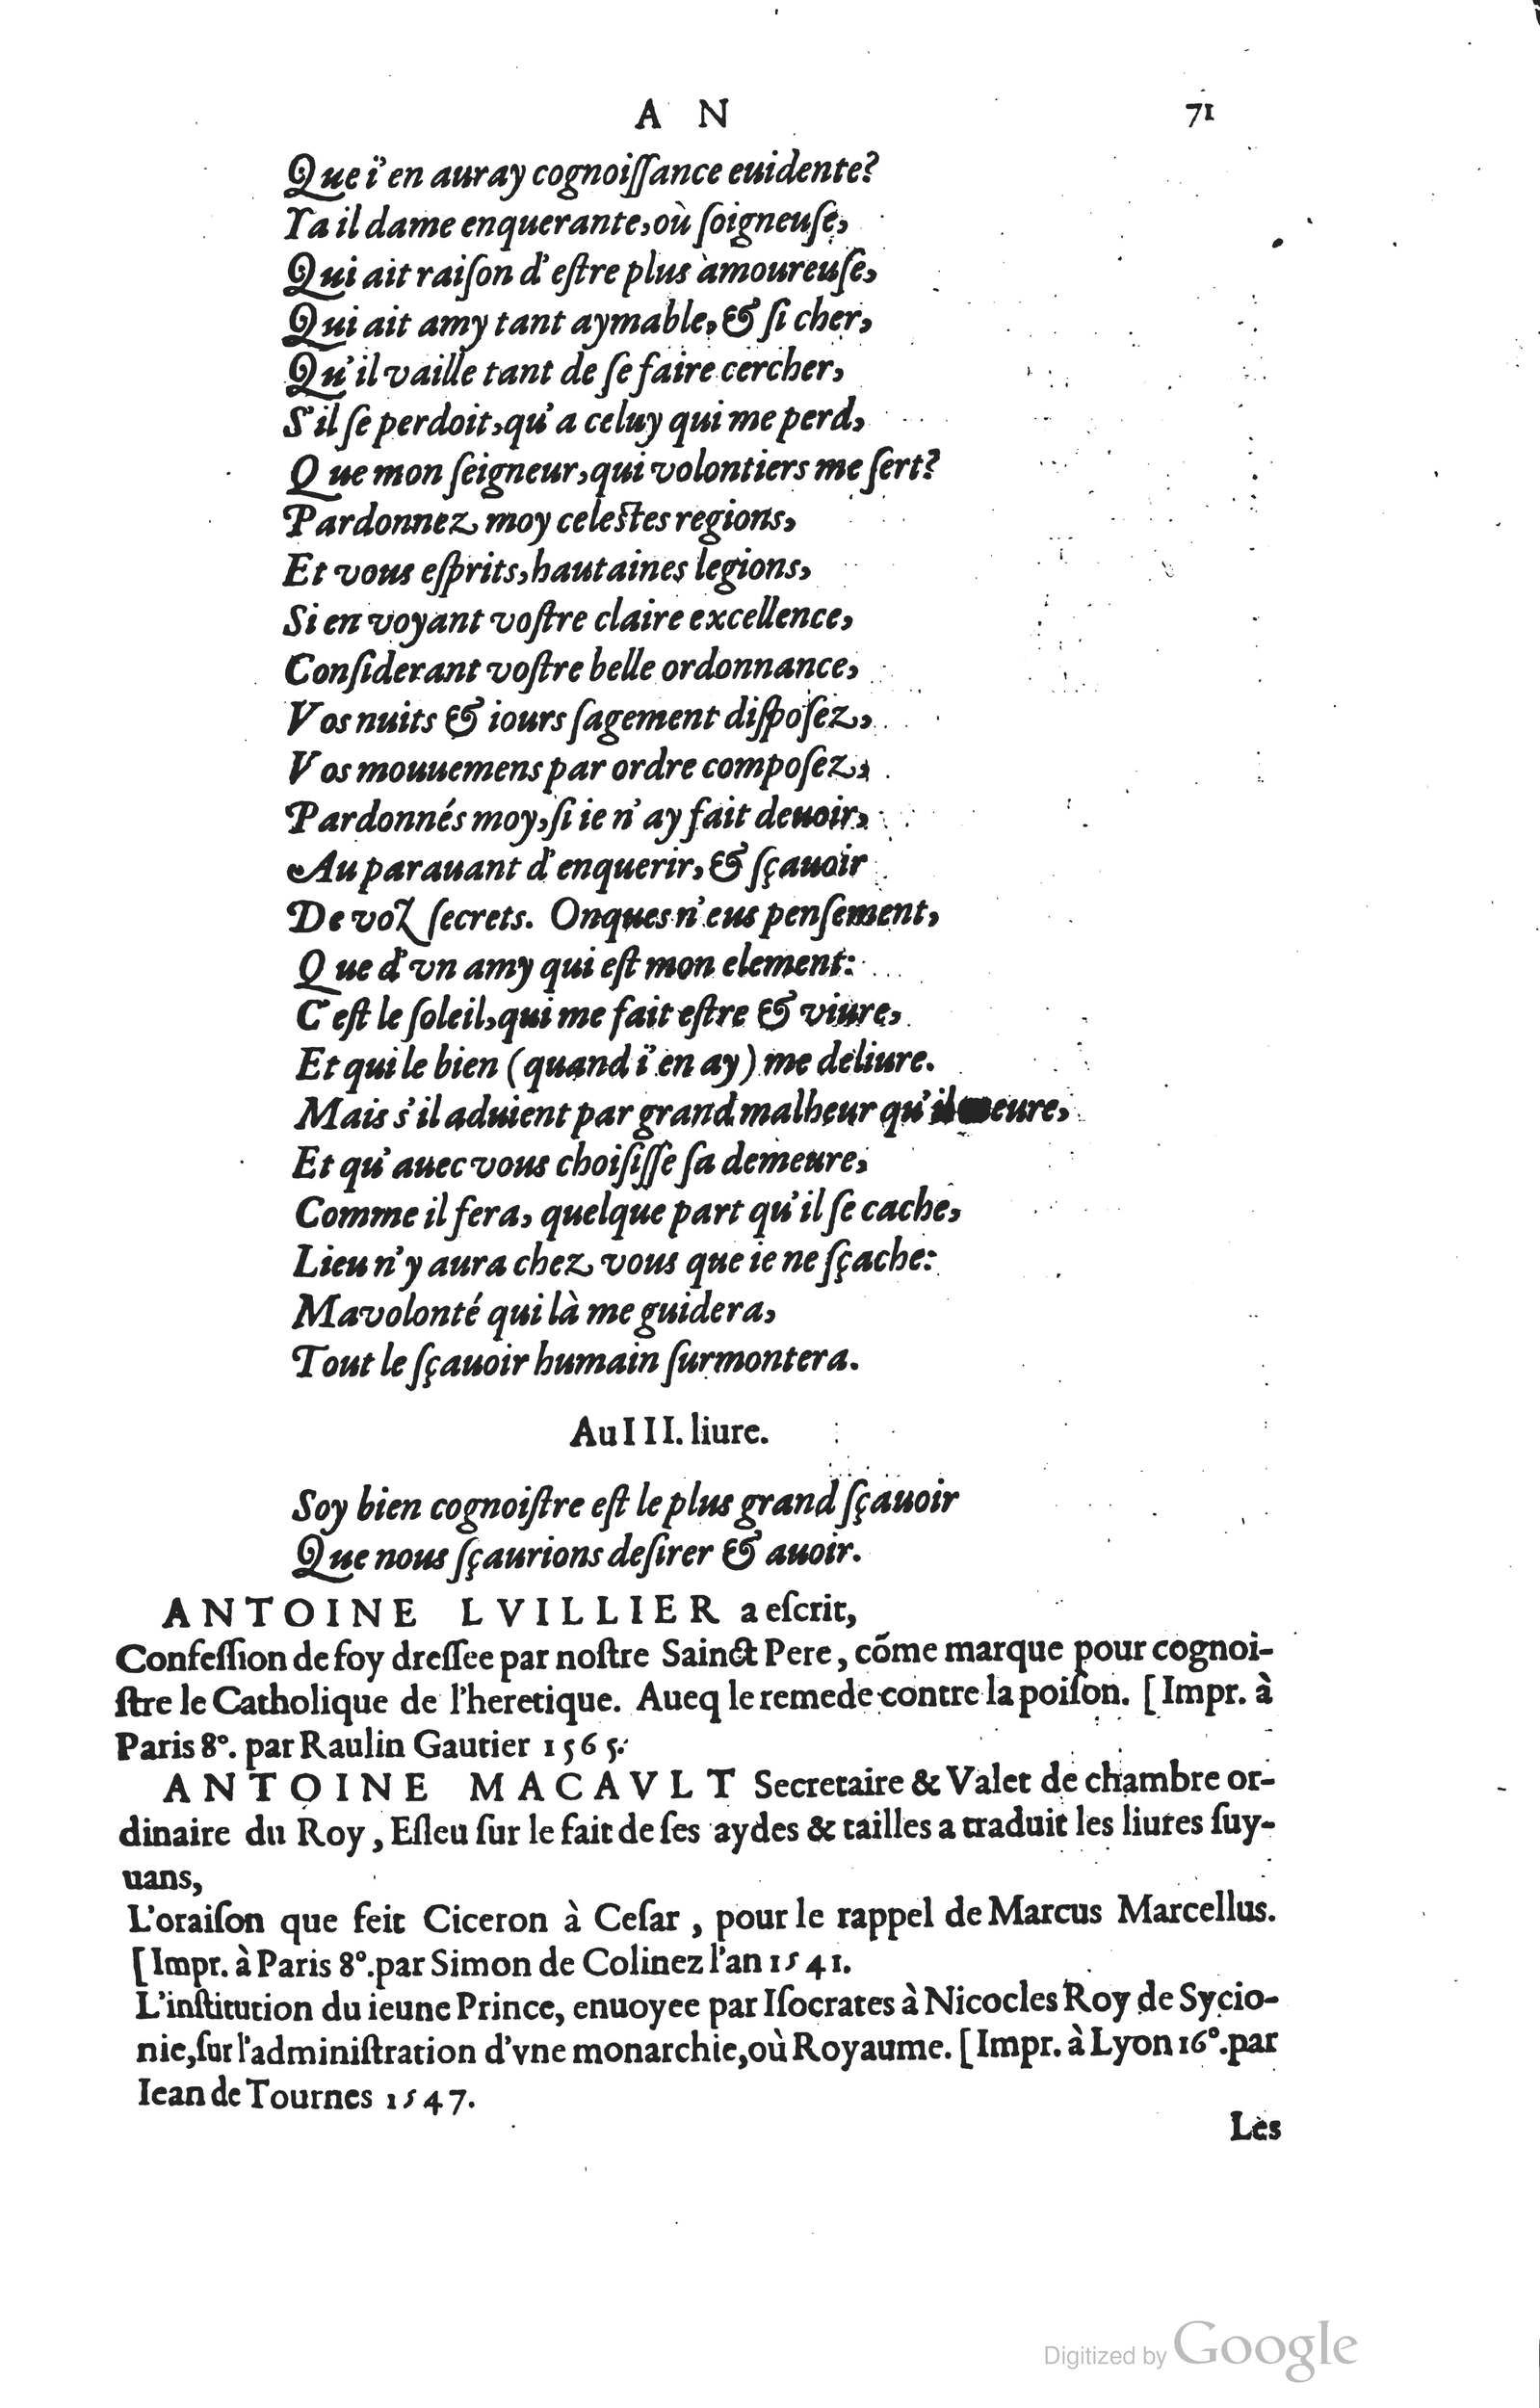 A N 71
Que i'en auray cognoiſſance euidente?
Ya il dame enquerante, où ſoigneuſe,
Qui ait raiſon d'eſtre plus amoureuſe,
Qui ait amy tant aymable, & ſi cher,
Qu'il vaille tant de ſe faire cercher,
S'il ſe perdoit, qu'a celuy qui me perd,
Que mon ſeigneur, qui volontiers me ſert?
Pardonnez moy celeſtes regions,
Et vous eſprits, hautaines legions,
Si en voyant voſtre claire excellence,
Conſiderant voſtre belle ordonnance,
Vos nuits & iours ſagement diſpoſez,
Vos mouuemens par ordre compoſez,
Pardonnés moy, ſi ie n'ay fait deuoir,
Auparauant d'enquerir, & ſçauoir
De voz ſecrets. Onques n'eus penſement,
Que d'vn amy qui eſt mon element:
C'eſt le ſoleil, qui me fait eſtre & viure,
Et qui le bien (quand i'en ay) me deliure.
Mais s'il aduient par grand malheur qu'il meure,
Et qu'auec vous choiſiſſe ſa demeure,
Comme il fera, quelque part qu'il ſe cache,
Lieu n'y aura chez vous que ie ne ſçache:
Ma volonté qui là me guidera,
Tout le ſçauoir humain ſurmontera.
Au III. liure.
Soy bien cognoiſtre eſt le plus grand ſçauoir
Que nous ſçaurions deſirer & auoir.
ANTOINE LVILLIER a eſcrit,
Confeſſion de foy dreſſee par noſtre Sainct Pere, cõme marque pour cognoi-
ſtre le Catholique de l'heretique. Aueq le remede contre la poiſon. [Impr. à
Paris 8°. par Raulin Gautier 1565.
ANTOINE MACAVLT Secretaire & Valet de chambre or-
dinaire du Roy, Eſleu ſur le fait de ſes aydes & tailles a traduit les liures ſuy-
uans,
L'oraiſon que feit Ciceron à Ceſar, pour le rappel de Marcus Marcellus.
[Impr. à Paris 8°. par Simon de Colinez l'an 1541.
L'inſtitution du ieune Prince, enuoyee par Iſocrates à Nicocles Roy de Sycio-
nie, ſur l'adminiſtration d'vne monarchie, où Royaume. [Impr. à Lyon 16°. par
Iean de Tournes 1547.
Les
Digitized by Google